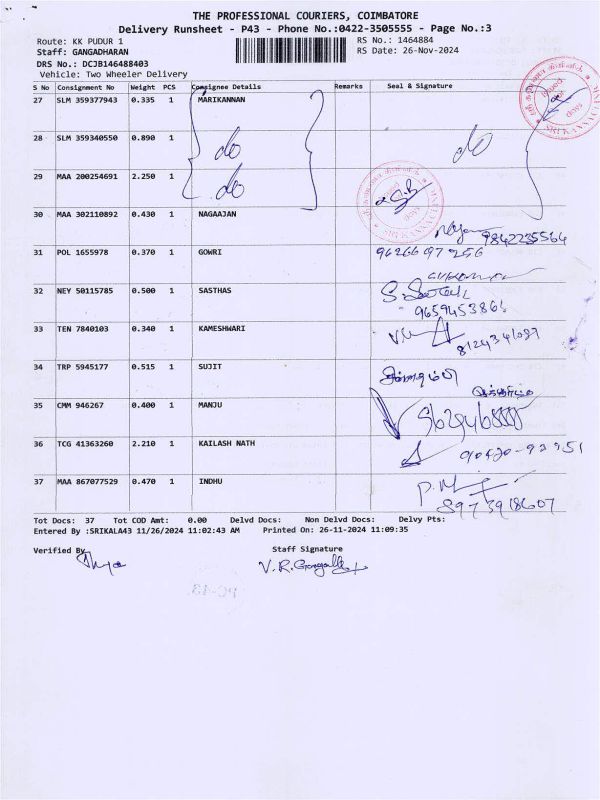 THE PROFESSIONAL COURIERS, COIMBATORE
Delivery Runsheet - P43 - Phone No.:0422-3505555 - Page No.:3
Route: KK PUDUR 1
RS No.: 1464884
Staff: GANGADHARAN
RS Date: 26-Nov-2024
DRS No.: DCJB146488403
Vehicle: Two Wheeler Delivery
S No Consignment No Weight PCS Consignee Details Remarks Seal & Signature
27 SLM 359377943 0.335 1 MARIKANNAN
28 SLM 359340550 0.890 1 do do
29 MAA 200254691 2.250 1 do
30 MAA 302110892 0.430 1 NAGAAJAN 9842235564
31 POL 1655978 0.370 1 GOWRI 9626697256
32 NEY 50115785 0.500 1 SASTHAS
33 TEN 7840103 0.340 1 KAMESHWARI
34 TRP 5945177 0.515 1 SUJIT
35 CMM 946267 0.400 1 MANJU
36 TCG 41363260 2.210 1 KAILASH NATH
37 MAA 867077529 0.470 1 INDHU 8973918607
Tot Docs: 37 Tot COD Amt: 0.00 Delvd Docs: Non Delvd Docs: Delvy Pts:
Entered By :SRIKALA43 11/26/2024 11:02:43 AM Printed On: 26-11-2024 11:09:35
Verified By Staff Signature